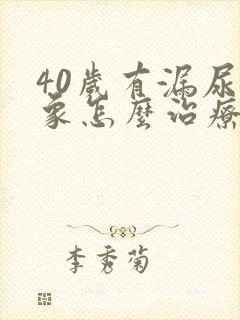 40歲有漏尿
象怎麼治療
李秀菊